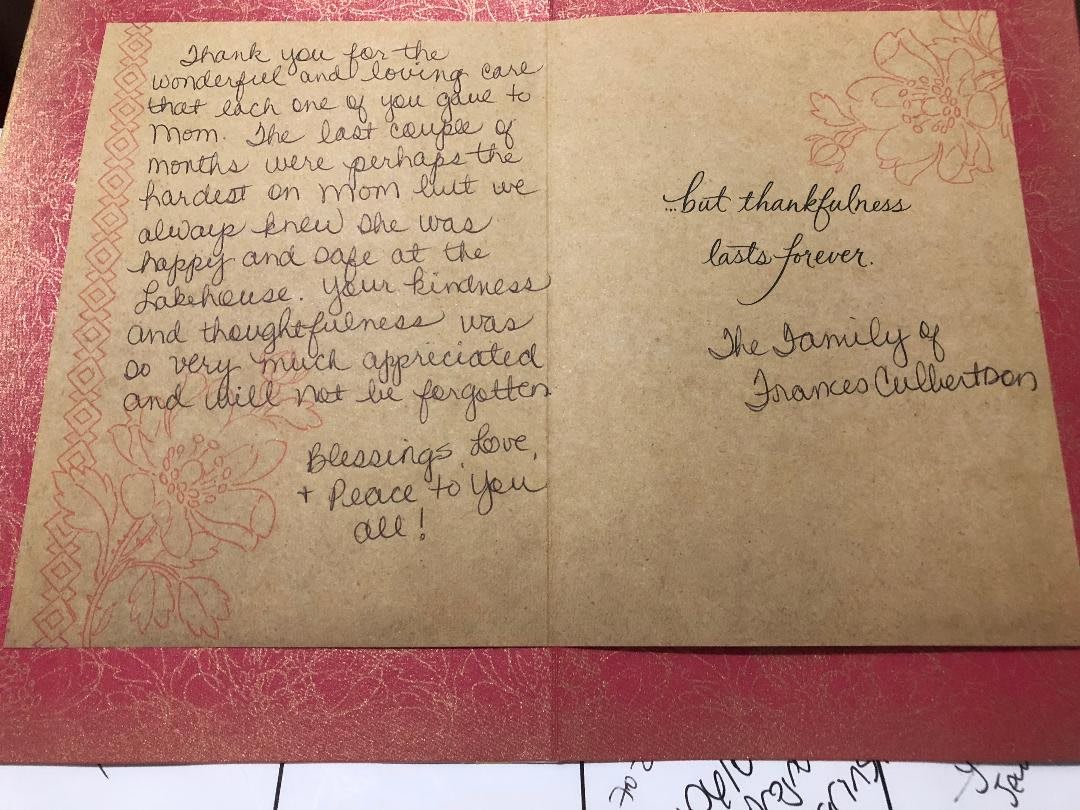 Thank you for the
wonderful and loving care
that each one of you gave to
Mom. The last couple of
months were perhaps the
hardest on Mom but we
always knew she was
happy and safe at the
Lakehouse. Your kindness
and thoughtfulness was
so very much appreciated
and will not be forgotten.
Blessings, Love,
+ Peace to You
all!
...but thankfulness
lasts forever.
The Family of
Frances Culbertson